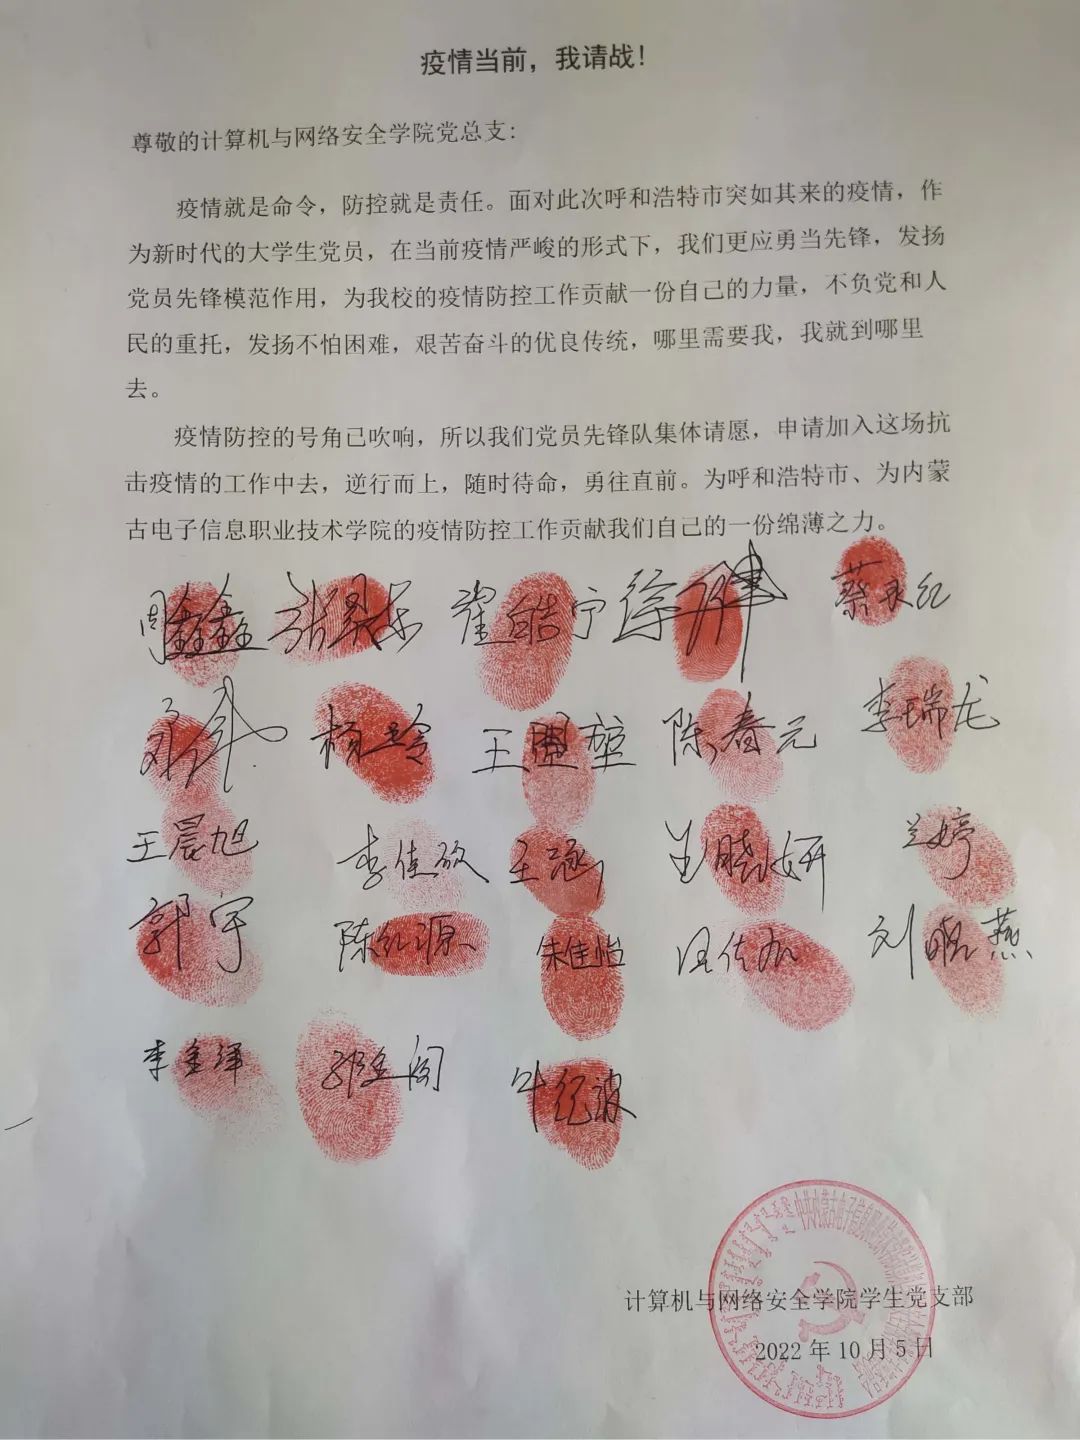 疫情当前，我请战！
尊敬的计算机与网络安全学院党总支：
疫情就是命令，防控就是责任。面对此次呼和浩特市突如其来的疫情，作
为新时代的大学生党员，在当前疫情严峻的形式下，我们更应勇当先锋，发扬
党员先锋模范作用，为我校的疫情防控工作贡献一份自己的力量，不负党和人
民的重托，发扬不怕困难，艰苦奋斗的优良传统，哪里需要我，我就到哪里
去。
疫情防控的号角已吹响，所以我们党员先锋队集体请愿，申请加入这场抗
击疫情的工作中去，逆行而上，随时待命，勇往直前。为呼和浩特市、为内蒙
古电子信息职业技术学院的疫情防控工作贡献我们自己的一份绵薄之力。
周鑫鑫 翟皓宁
杨玲 陈春元 李瑞龙
王晨旭 王涵 王晓妍 兰婷
郭宇 陈红源 朱佳怡 刘晓燕
李金泽
计算机与网络安全学院学生党支部
2022年10月5日